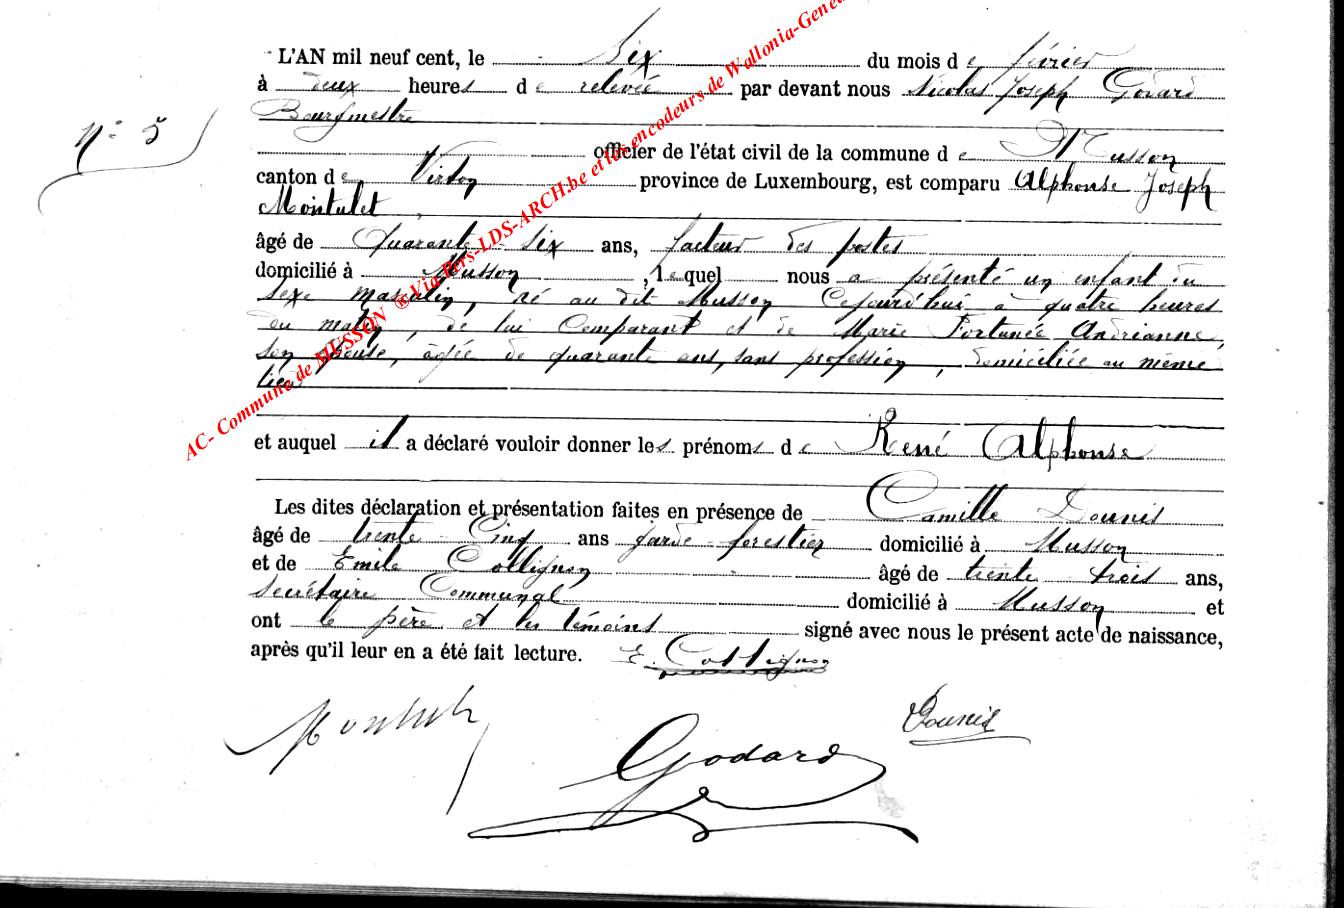 L'AN mil neuf cent, le six du mois de février
à deux heures de relevée par devant nous Nicolas Joseph Godard
Bourgmestre
N° 5
officier de l'état civil de la commune de Musson
canton de Virton province de Luxembourg, est comparu Alphonse Joseph
Montulet,
âgé de Quarante-six ans, facteur des postes
domicilié à Musson, lequel nous a présenté un enfant du
sexe masculin, né au dit Musson Cejourd'hui à quatre heures
du matin, de lui Comparant et de Marie Fortunée Andrianne,
son épouse, âgée de quarante ans, sans profession, domiciliée au même
lieu
et auquel il a déclaré vouloir donner les prénoms de René Alphonse
Les dites déclaration et présentation faites en présence de Camille Dounis
âgé de trente-Cinq ans garde-forestier domicilié à Musson
et de Emile Collignon âgé de trente-trois ans,
Secrétaire Communal domicilié à Musson et
ont le père et les témoins signé avec nous le présent acte de naissance,
après qu'il leur en a été fait lecture. E. Collignon
Montulet
Dounis
Godard
AC- Commune de MUSSON ® Via Pers-LDS-ARCH.be et les encodeurs de Wallonia-Genea